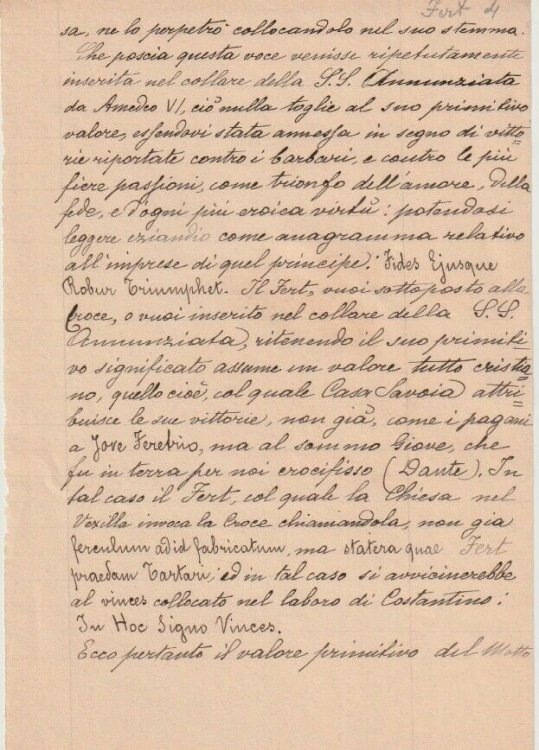 Fert 4
sa, ne lo perpetrò collocandolo nel suo stemma.
Che poscia questa voce venisse ripetutamente
inserita nel collare della S.S. Annunziata
da Amedeo VI, ciò nulla toglie al suo primitivo
valore, essendovi stata annessa in segno di vitto=
rie riportate contro i barbari, e contro le più
fiere passioni, come trionfo dell'amore, della
fede, e d'ogni più eroica virtù: potendosi
leggere eziandio come anagramma relativo
all'imprese di quel principe: Fides Ejusque
Robur Triumphet. Il Fert, vuoi sottoposto alla
Croce, o vuoi inserito nel collare della S.S.
Annunziata, ritenendo il suo primiti=
vo significato assume un valore tutto cristia=
no, quello cioè, col quale Casa Savoia attri=
buisce le sue vittorie, non già, come i pagani
a Jove Feretrio, ma al sommo Giove, che
fu in terra per noi crocifisso (Dante). In
tal caso il Fert, col quale la Chiesa nel
Vexilla invoca la Croce chiamandola, non già
ferculum ad id fabricatum, ma statera quae Fert
praedam Tartari; ed in tal caso si avvicinerebbe
al vinces collocato nel laboro di Costantino:
In Hoc Signo Vinces.
Ecco pertanto il valore primitivo del Motto